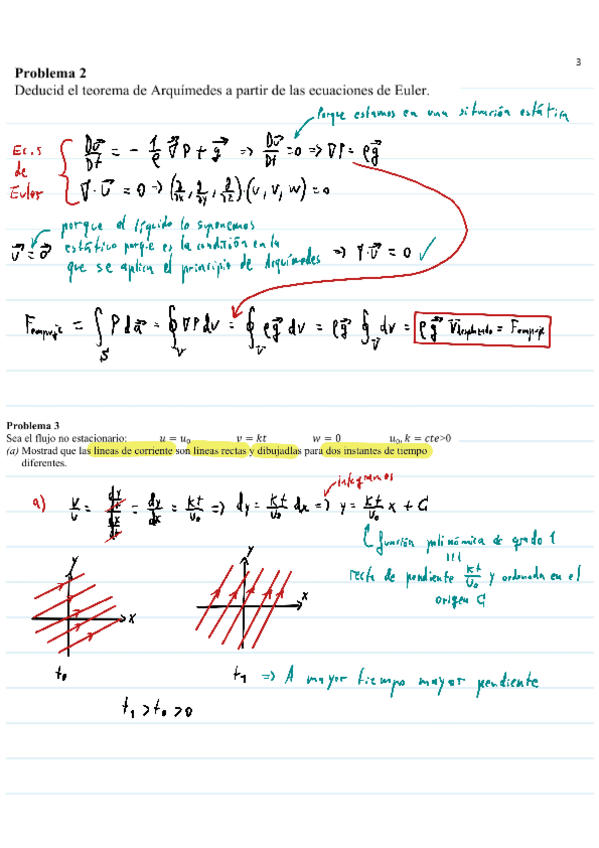 3
Problema 2
Deducid el teorema de Arquímedes a partir de las ecuaciones de Euler.
Porque estamos en una situación estática
Ec.s de Euler
Dv⃗/Dt = - 1/ρ ∇⃗P + g⃗ => Dv⃗/Dt = 0 => ∇P = ρg⃗
∇⃗·v⃗ = 0 => (∂/∂x, ∂/∂y, ∂/∂z)·(u, v, w) = 0
porque el líquido lo suponemos
v⃗ = 0⃗ estático porque es la condición en la
que se aplica el principio de Arquímedes => ∇·v⃗ = 0 ✓
F empuje = ∫_S P da⃗ = ∮_V ∇P dv = ∮_V ρg⃗ dv = ρg⃗ ∮_V dv = ρg⃗ V desplazado = F empuje
Problema 3
Sea el flujo no estacionario: u = u₀ v = kt w = 0 u₀, k = cte>0
(a) Mostrad que las líneas de corriente son líneas rectas y dibujadlas para dos instantes de tiempo
diferentes.
integramos
a) v/u = (dy/dt)/(dx/dt) = dy/dx = kt/u₀ => dy = kt/u₀ dx => y = kt/u₀ x + C
función polinómica de grado 1
recta de pendiente kt/u₀ y ordenada en el
origen C
y
x
y
x
t₀
t₁ => A mayor tiempo mayor pendiente
t₁ > t₀ > 0